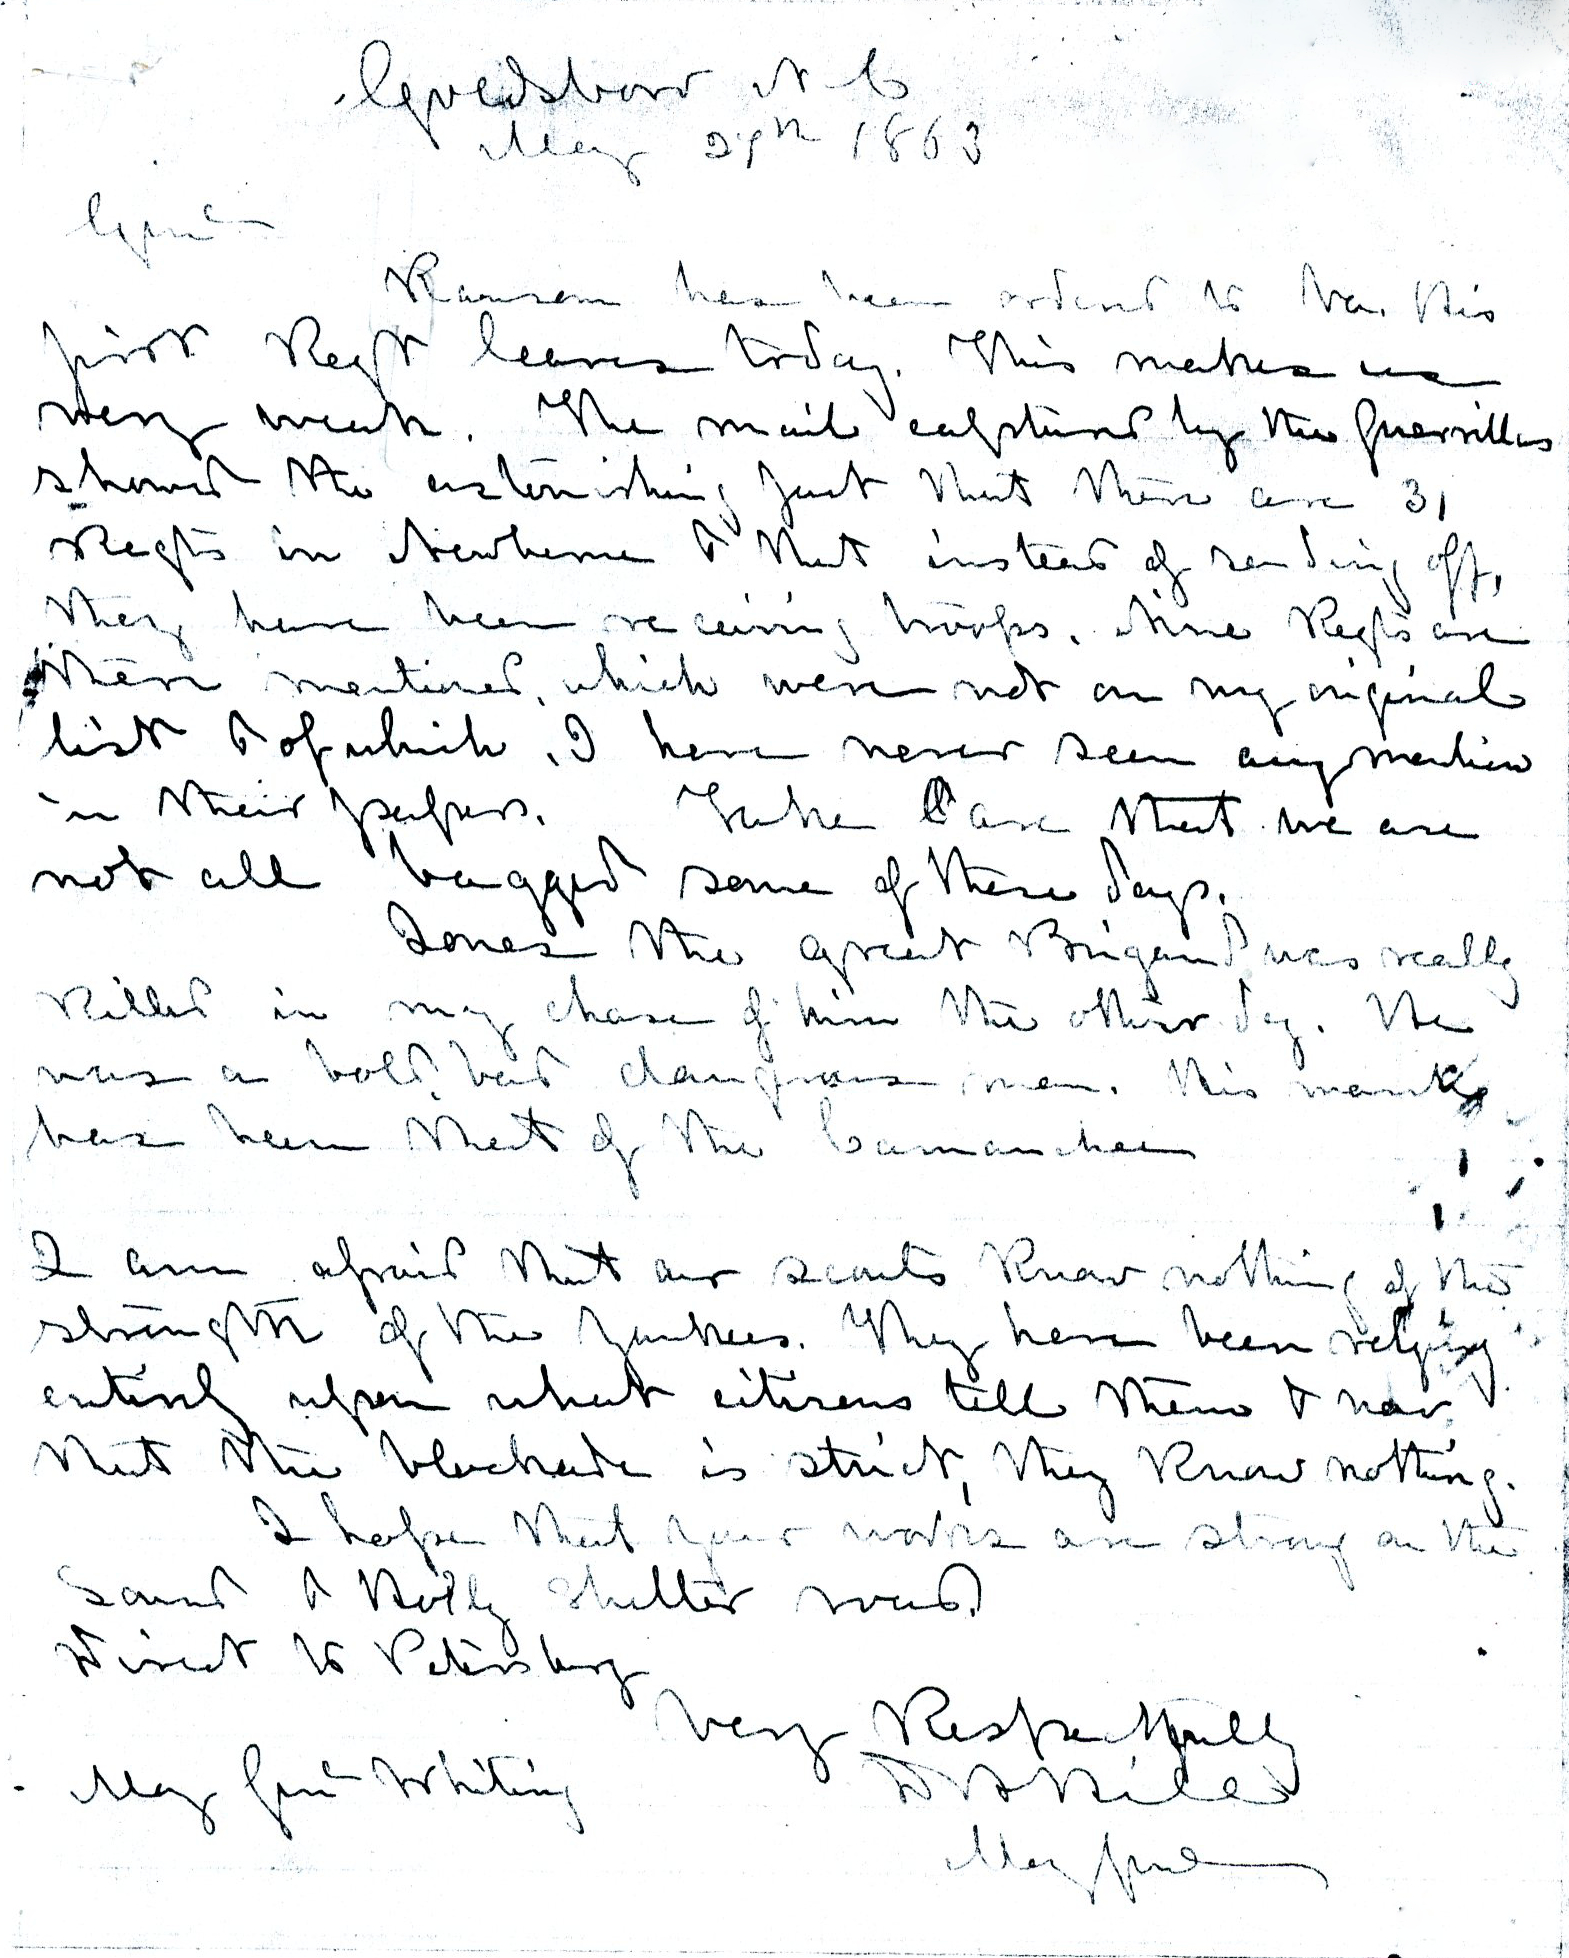 Goldsboro N C
May 29th 1863
Genl
Ransom has been ordered to Va. His
first Regt leaves today. This makes us
very weak. The mail captured by the Guerrillas
showed the astonishing fact that there are 31
Regts in Newberne & that instead of sending off,
they have been receiving troops. Nine Regts are
there mentioned, which were not on my original
list & of which, I have never seen any mention
in their papers. Take Care that we are
not all bagged some of these days.
Jones the great Brigand was really
killed in my chase of him the other day. He
was a bold, bad dangerous man. His
has been that of the Camanchee
I am afraid that our scouts know nothing of the
strength of the Yankees. They have been relying
entirely upon what citizens tell them & now
that the blockade is strict, they know nothing.
I hope that your works are strong on the
Sound & Holly Shelter road.
Direct to Petersburg
Very Respectfully
Maj Genl Whiting
D H Hill
Maj Genl